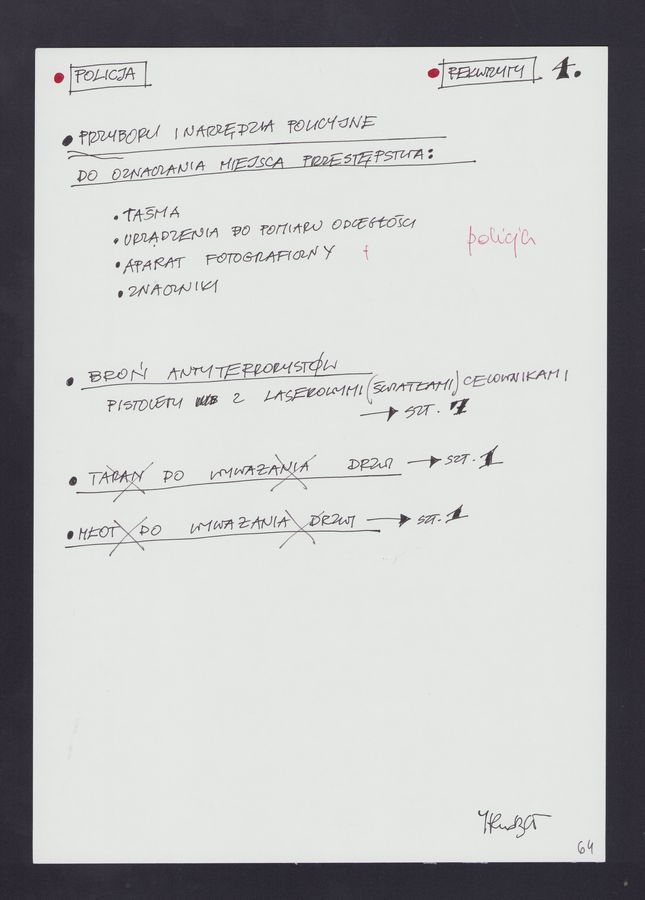 • POLICJA
• REKWIZYTY 4.
• PRZYBORY I NARZĘDZIA POLICYJNE
DO OZNACZANIA MIEJSCA PRZESTĘPSTWA:
• TAŚMA
• URZĄDZENIA DO POMIARU ODLEGŁOŚCI
• APARAT FOTOGRAFICZNY +
policja
• ZNACZNIKI
• BROŃ ANTYTERRORYSTÓW
PISTOLETY Z LASEROWYMI (ŚWIATŁAMI) CELOWNIKAMI
→ SZT. 7
• TARAN DO WYWAŻANIA DRZWI → SZT. 1
• MŁOT DO WYWAŻANIA DRZWI → SZT. 1
64